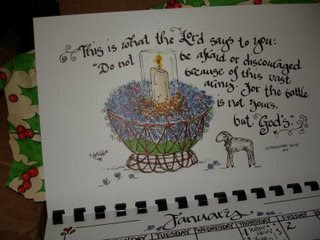 This is what the Lord says to you:
"Do not be afraid or discouraged
because of this vast
army. For the battle
is not yours,
but God's."
January
TUESDAY WEDNESDAY THURSDAY FRIDAY
1 2